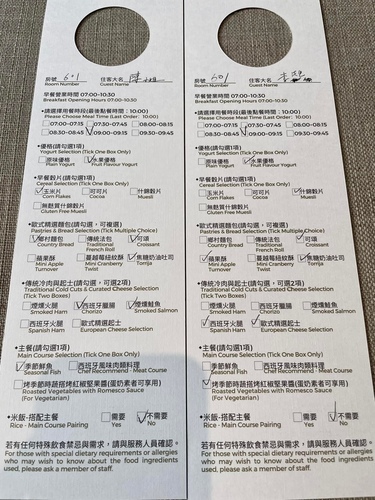 房號 601 住客大名
Room Number Guest Name
早餐營業時間 07:00-10:30
Breakfast Opening Hours 07:00-10:30
•請選擇用餐時段(最後點餐時間：10:00)
Please Choose Meal Time (Last Order: 10:00)
07:00-07:15 07:30-07:45 08:00-08:15
08:30-08:45 09:00-09:15 09:30-09:45
•優格(請勾選1項)
Yogurt Selection (Tick One Box Only)
原味優格 水果優格
Plain Yogurt Fruit Flavour Yogurt
•早餐穀片(請勾選1項)
Cereal Selection (Tick One Box Only)
玉米片 可可片 什錦穀片
Corn Flakes Coco Muesli
無麩質什錦穀片
Gluten Free Muesli
•歐式精選麵包(請勾選，可複選)
Pastries & Bread Selection (Tick Multiple Choice)
鄉村麵包 傳統法包 可頌
Country Bread Traditional French Roll Croissant
蘋果酥 蔓越莓紐紋酥 焦糖奶油吐司
Mini Apple Turnover Mini Cranberry Twist Torrija
•傳統冷肉與起士(請勾選2項)
Traditional Cold Cuts & Curated Cheese Selection
(Tick Two Boxes)
煙燻火腿 西班牙臘腸 煙燻鮭魚
Smoked Ham Chorizo Smoked Salmon
西班牙火腿 歐式精選起士
Spanish Ham European Cheese Selection
•主餐(請勾選1項)
Main Course Selection (Tick One Box Only)
季節鮮魚 西班牙風味肉類料理
Seasonal Fish Chef Recommend - Meat Course
烤季節時蔬搭烤紅椒堅果醬(蛋奶素者可享用)
Roasted Vegetables with Romesco Sauce
(For Vegetarian)
•米飯-搭配主餐 需要 不需要
Rice - Main Course Pairing Yes No
若有任何特殊飲食禁忌與需求，請與服務人員確認。
For those with special dietary requirements or allergies
who may wish to know about the food ingredients
used, please ask a member of staff.
房號 601 住客大名
Room Number Guest Name
早餐營業時間 07:00-10:30
Breakfast Opening Hours 07:00-10:30
•請選擇用餐時段(最後點餐時間：10:00)
Please Choose Meal Time (Last Order: 10:00)
07:00-07:15 07:30-07:45 08:00-08:15
08:30-08:45 09:00-09:15 09:30-09:45
•優格(請勾選1項)
Yogurt Selection (Tick One Box Only)
原味優格 水果優格
Plain Yogurt Fruit Flavour Yogurt
•早餐穀片(請勾選1項)
Cereal Selection (Tick One Box Only)
玉米片 可可片 什錦穀片
Corn Flakes Coco Muesli
無麩質什錦穀片
Gluten Free Muesli
•歐式精選麵包(請勾選，可複選)
Pastries & Bread Selection (Tick Multiple Choice)
鄉村麵包 傳統法包 可頌
Country Bread Traditional French Roll Croissant
蘋果酥 蔓越莓紐紋酥 焦糖奶油吐司
Mini Apple Turnover Mini Cranberry Twist Torrija
•傳統冷肉與起士(請勾選2項)
Traditional Cold Cuts & Curated Cheese Selection
(Tick Two Boxes)
煙燻火腿 西班牙臘腸 煙燻鮭魚
Smoked Ham Chorizo Smoked Salmon
西班牙火腿 歐式精選起士
Spanish Ham European Cheese Selection
•主餐(請勾選1項)
Main Course Selection (Tick One Box Only)
季節鮮魚 西班牙風味肉類料理
Seasonal Fish Chef Recommend - Meat Course
烤季節時蔬搭烤紅椒堅果醬(蛋奶素者可享用)
Roasted Vegetables with Romesco Sauce
(For Vegetarian)
•米飯-搭配主餐 需要 不需要
Rice - Main Course Pairing Yes No
若有任何特殊飲食禁忌與需求，請與服務人員確認。
For those with special dietary requirements or allergies
who may wish to know about the food ingredients
used, please ask a member of staff.